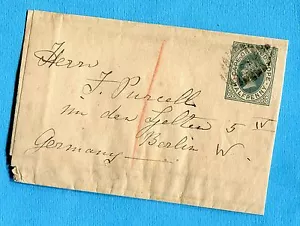 Herr
F. Purcell
in den Zelten 5 IV
Berlin W.
Germany
HALFPENNY